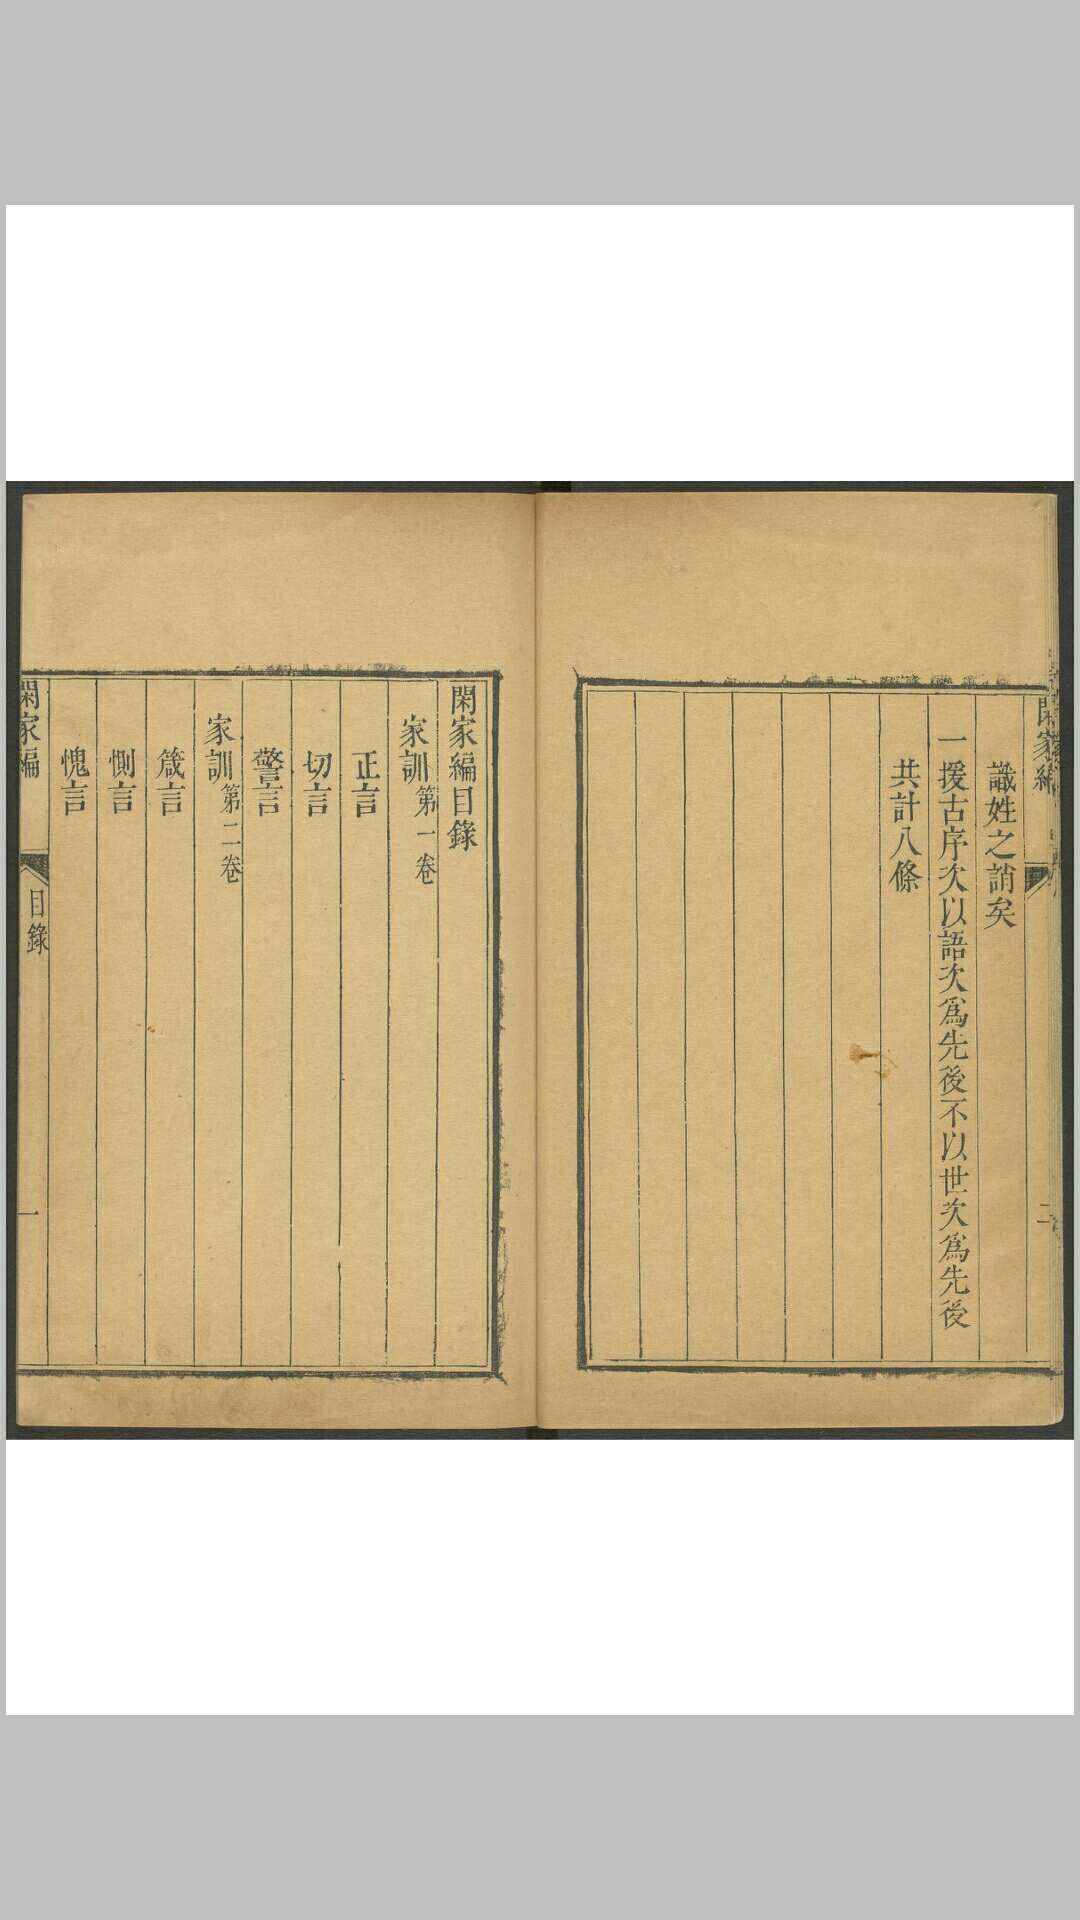 閑家編
二
識姓之誚矣
一援古序次以語次爲先後不以世次爲先後
共計八條
閑家編目錄
家訓第一卷
正言
切言
警言
家訓第二卷
箴言
惻言
愧言
閑家編
目錄
一